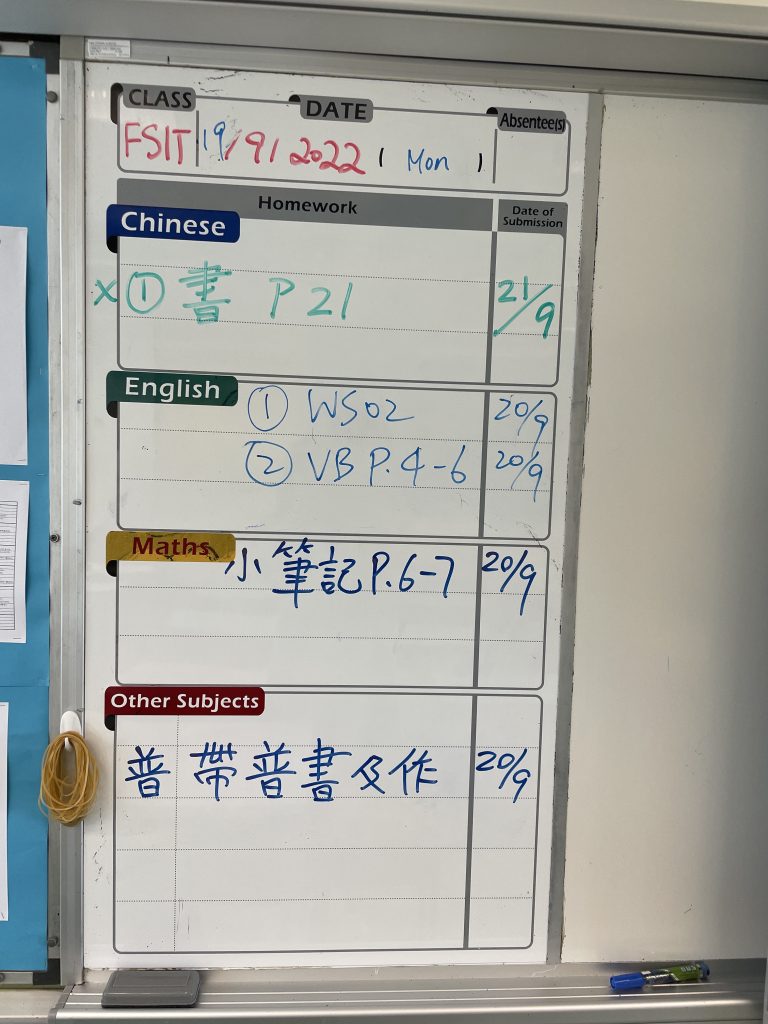 CLASS DATE Absentee(s)
FSIT 19/9/2022 (Mon)
Homework Date of Submission
Chinese
x① 書 P 21 21/9
English
① WS02 20/9
② VB P.4-6 20/9
Maths
小筆記 P.6-7 20/9
Other Subjects
普 帶普書及作 20/9